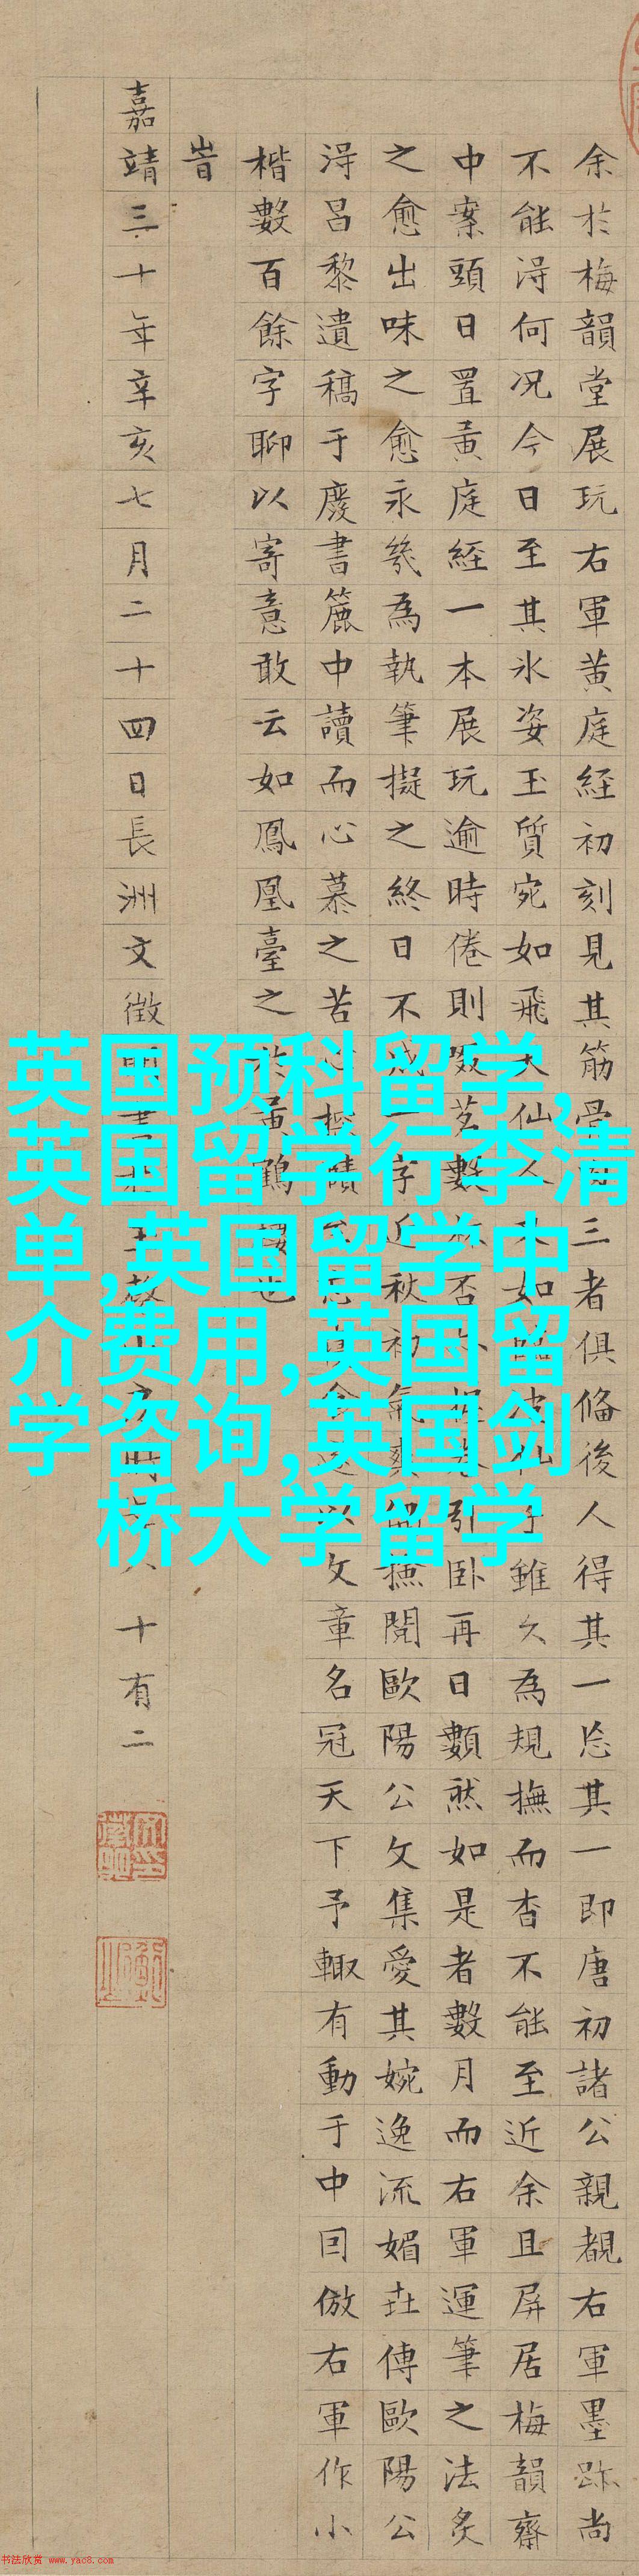 余於梅韻堂展玩右軍黄庭経初刻見其筋骨三者俱俻後人得其一忘其一即唐初諸公親覩右軍墨跡尚
不能淂何况今日至其氷姿玉質宛如飛天仙人如雖久為規撫而杳不能至近余且屏居梅韻齋
中案頭日置黄庭経一本展玩逾時倦則啜茗數否引卧再日然如是者數月而右軍運筆之法炙
之愈出味之愈永幾為執筆擬之終日不成一字近秋初氣爽撫閱歐陽公文集愛其婉逸流媚世傳歐陽公
淂昌黎遺稿于廢書簏中讀而心慕之苦心文章名冠天下予輙有動于中因倣右軍作小
楷數百餘字聊以寄意敢云如鳳凰臺之於黄鶴樓也
旹
嘉靖三十年辛亥七月二十四日長洲文徵明書八十有二
英国预科留学,
英国留学行李清
单,英国留学中
介费用,英国留
学咨询,英国剑
桥大学留学
书法欣赏 www.yac8.com